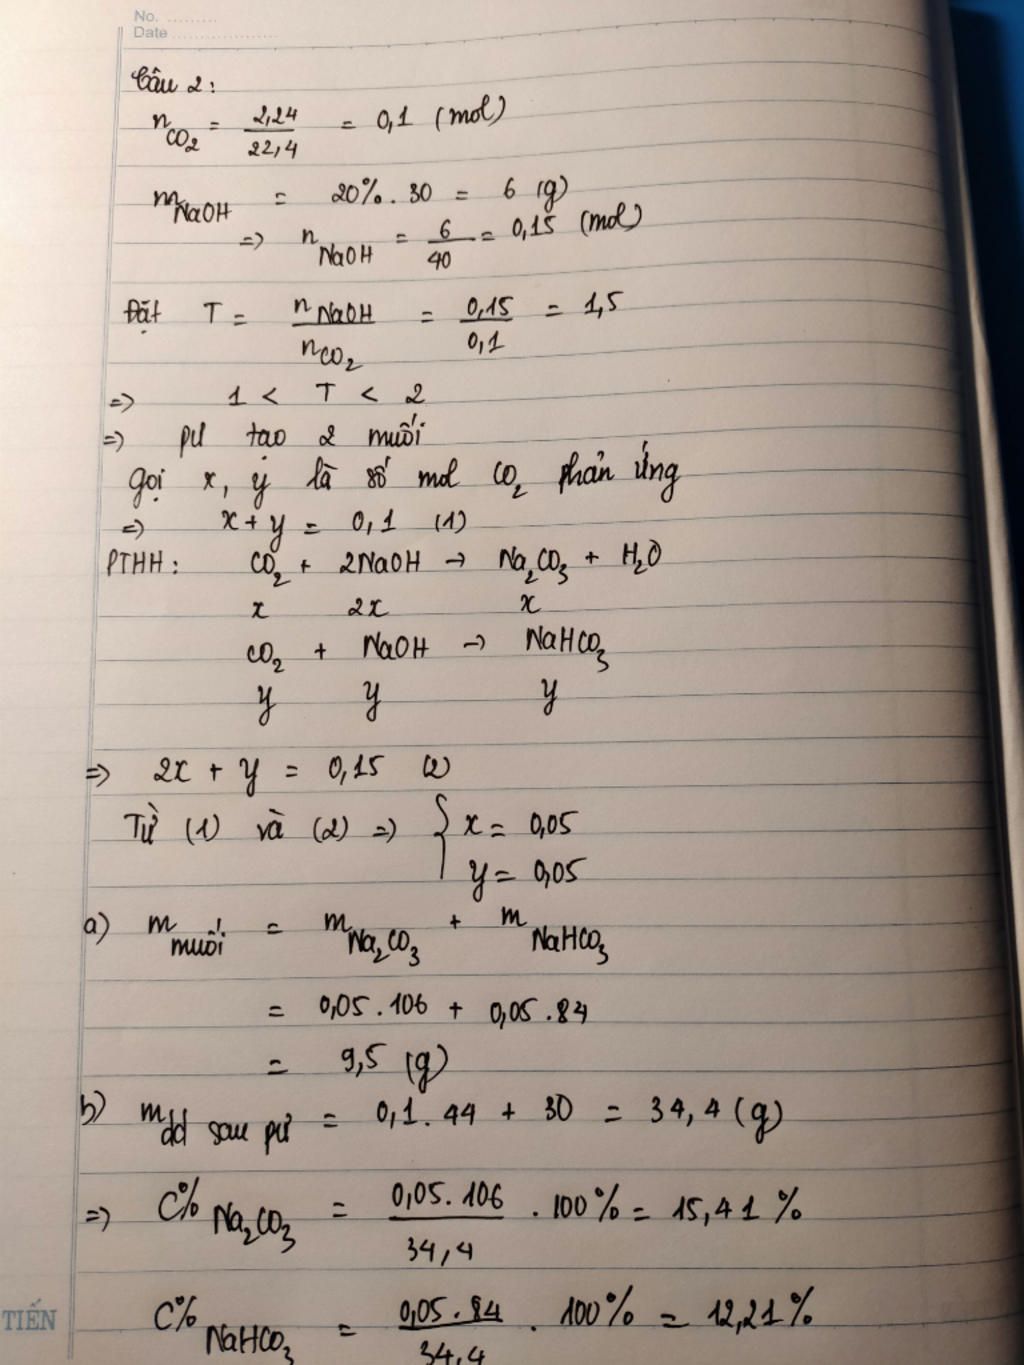 No. .........
Date ....................
Câu 2:
n CO₂ = 2,24 / 22,4 = 0,1 (mol)
m NaOH = 20% . 30 = 6 (g)
=> n NaOH = 6 / 40 = 0,15 (mol)
Đặt T = n NaOH / n CO₂ = 0,15 / 0,1 = 1,5
=> 1 < T < 2
=> pư tạo 2 muối
gọi x, y là số mol CO₂ phản ứng
=> x + y = 0,1 (1)
PTHH: CO₂ + 2NaOH → Na₂CO₃ + H₂O
x 2x x
CO₂ + NaOH → NaHCO₃
y y y
=> 2x + y = 0,15 (2)
Từ (1) và (2) => { x = 0,05
y = 0,05
a) m muối = m Na₂CO₃ + m NaHCO₃
= 0,05 . 106 + 0,05 . 84
= 9,5 (g)
b) m dd sau pư = 0,1 . 44 + 30 = 34,4 (g)
=> C% Na₂CO₃ = 0,05 . 106 / 34,4 . 100% = 15,41 %
TIẾN
C% NaHCO₃ = 0,05 . 84 / 34,4 . 100% = 12,21%